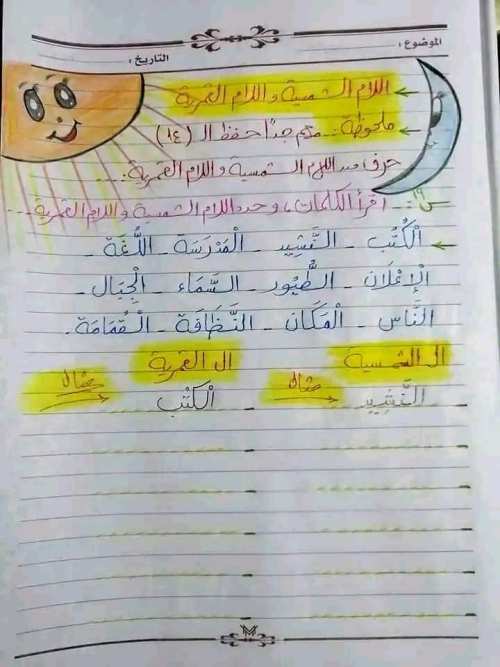 الموضوع :
التاريخ :
اللام الشمسية و اللام القمرية
ملحوظة :- مهم جدًا حفظ الـ (١٤)
حرف من اللام الشمسية و اللام القمرية :-
س١:- اقرأ الكلمات ، وحدد اللام الشمسية و اللام القمرية :-
الْكُتُب - النَّشِيد - الْمَدْرَسَة - اللُّغَة -
الْإِعْلَان - الطُّيُور - السَّمَاء - الْجِبَال -
النَّاس - الْمَكَان - النَّظَافَة - الْقُمَامَة .
ال الشمسية ال القمرية
النَّشِيد مثال الْكُتُب مثال